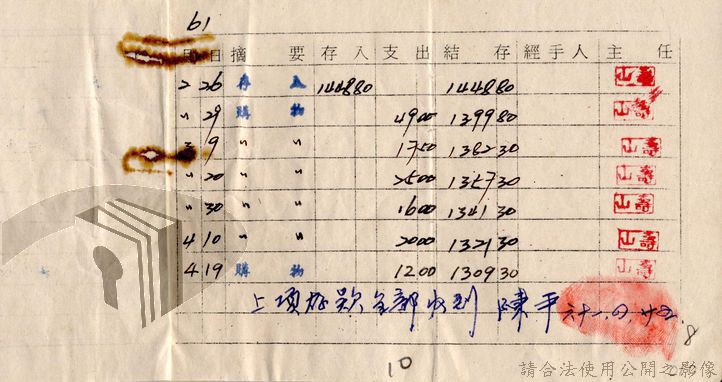 61
月 日 摘 要 存入 支出 結存 經手人 主任
2 26 存 入 144880 144880 山壽
〃 29 購 物 4900 139980 山壽
3 9 〃 〃 1750 138230 山壽
〃 20 〃 〃 2500 135730 山壽
〃 30 〃 〃 1600 134130 山壽
4 10 〃 〃 2000 132130 山壽
4 19 購 物 1200 130930 山壽
上項存款全部收到 陳平 六十一.四.廿五.
8
10
請合法使用公開之影像